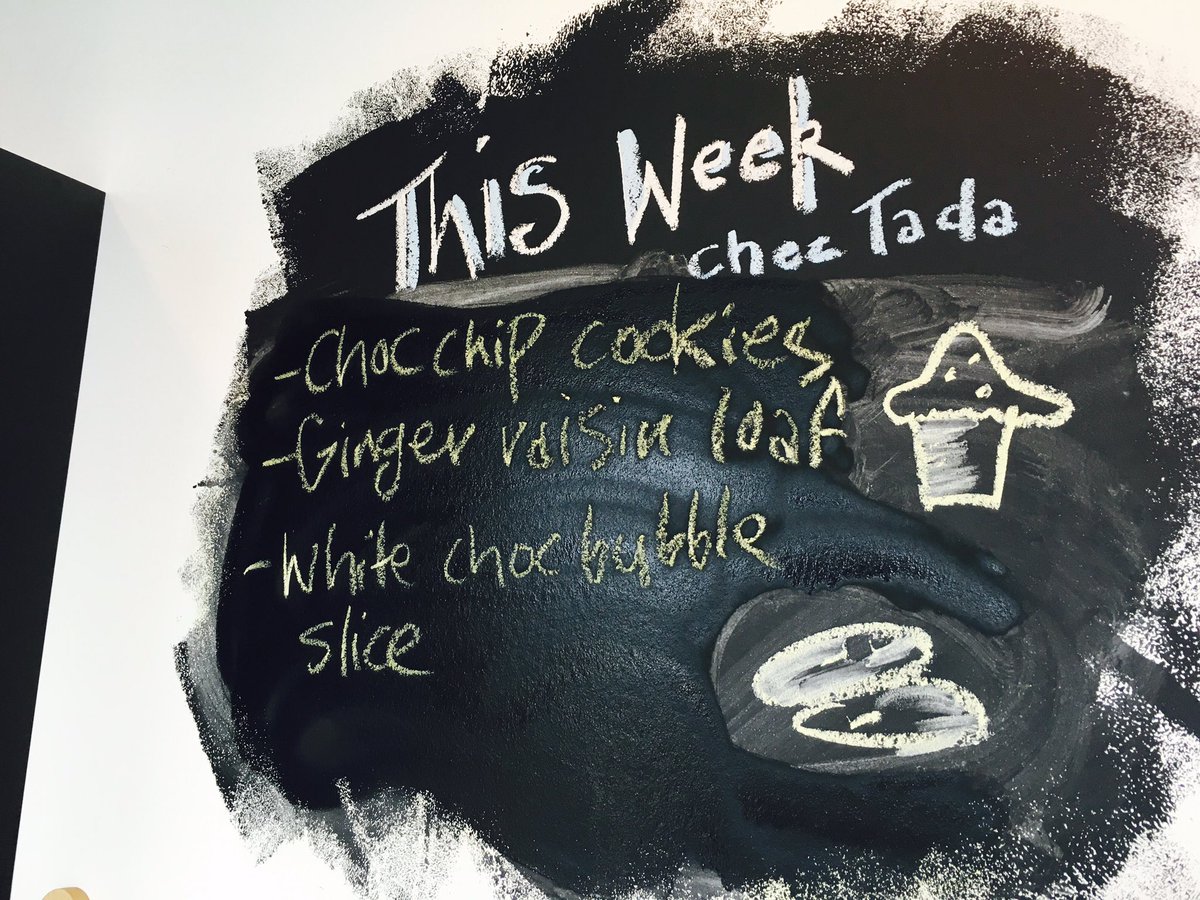 This Week
chez Tada
-Choc chip cookies
-Ginger raisin loaf
-White choc bubble
slice